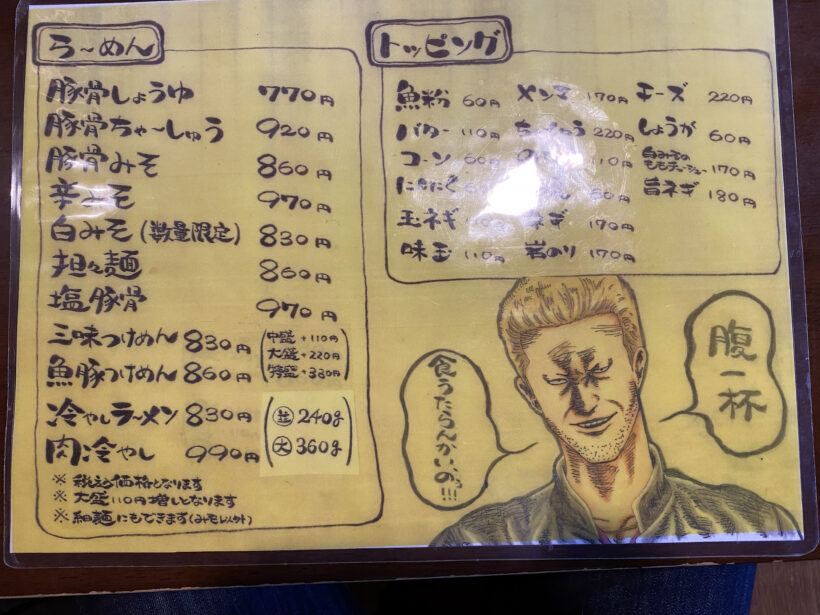 ら～めん
豚骨しょうゆ 770円
豚骨ちゃ～しゅう 920円
豚骨みそ 860円
辛みそ 970円
白みそ(数量限定) 830円
担々麺 860円
塩豚骨 970円
三味つけめん 830円
魚豚つけめん 860円
(中盛+110円
大盛+220円
特盛+330円)
冷やしラーメン 830円
肉冷やし 990円
(並 240g
大 360g)
※ 税込み価格となります
※ 大盛110円増しとなります
※ 細麺にもできます(みそ以外)
トッピング
魚粉 60円
バター 110円
コーン 60円
にんにく
玉ネギ
味玉 110円
メンマ 170円
ちゃーしゅう 220円
110円
60円
ネギ 170円
岩のり 170円
チーズ 220円
しょうが 60円
白みその
170円
旨ネギ 180円
腹一杯
食うたらんかい、のぅ!!!